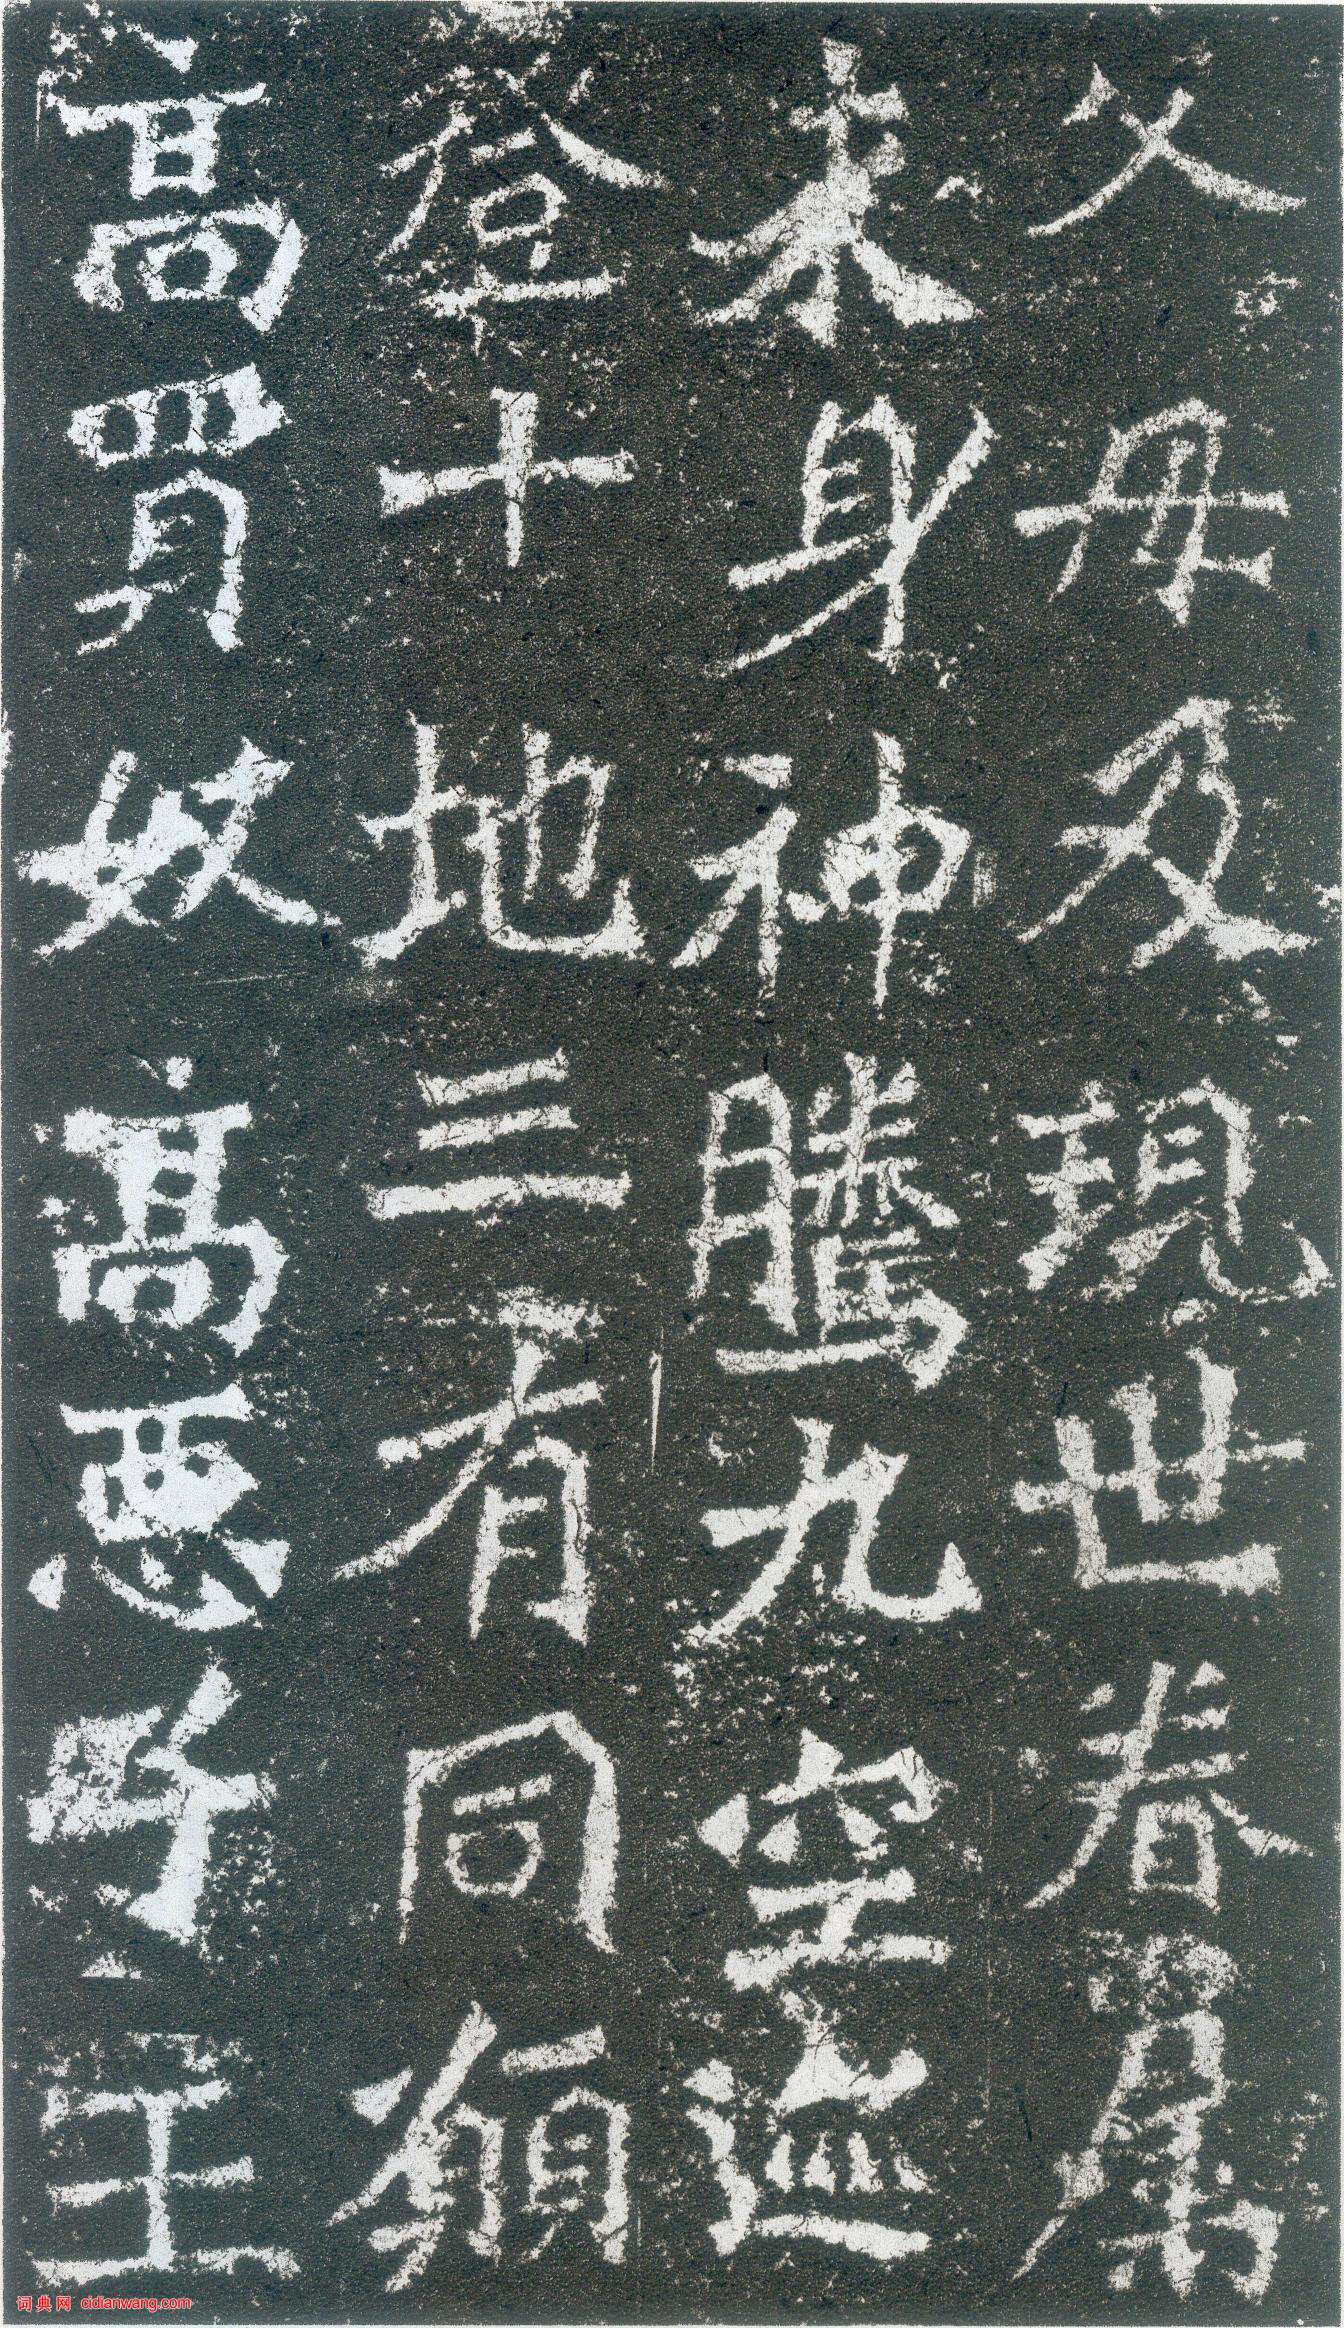 父母及現世眷屬
来身神騰九空迹
登十地三有同願
高買奴高惡子王
词典网 cidianwang.com